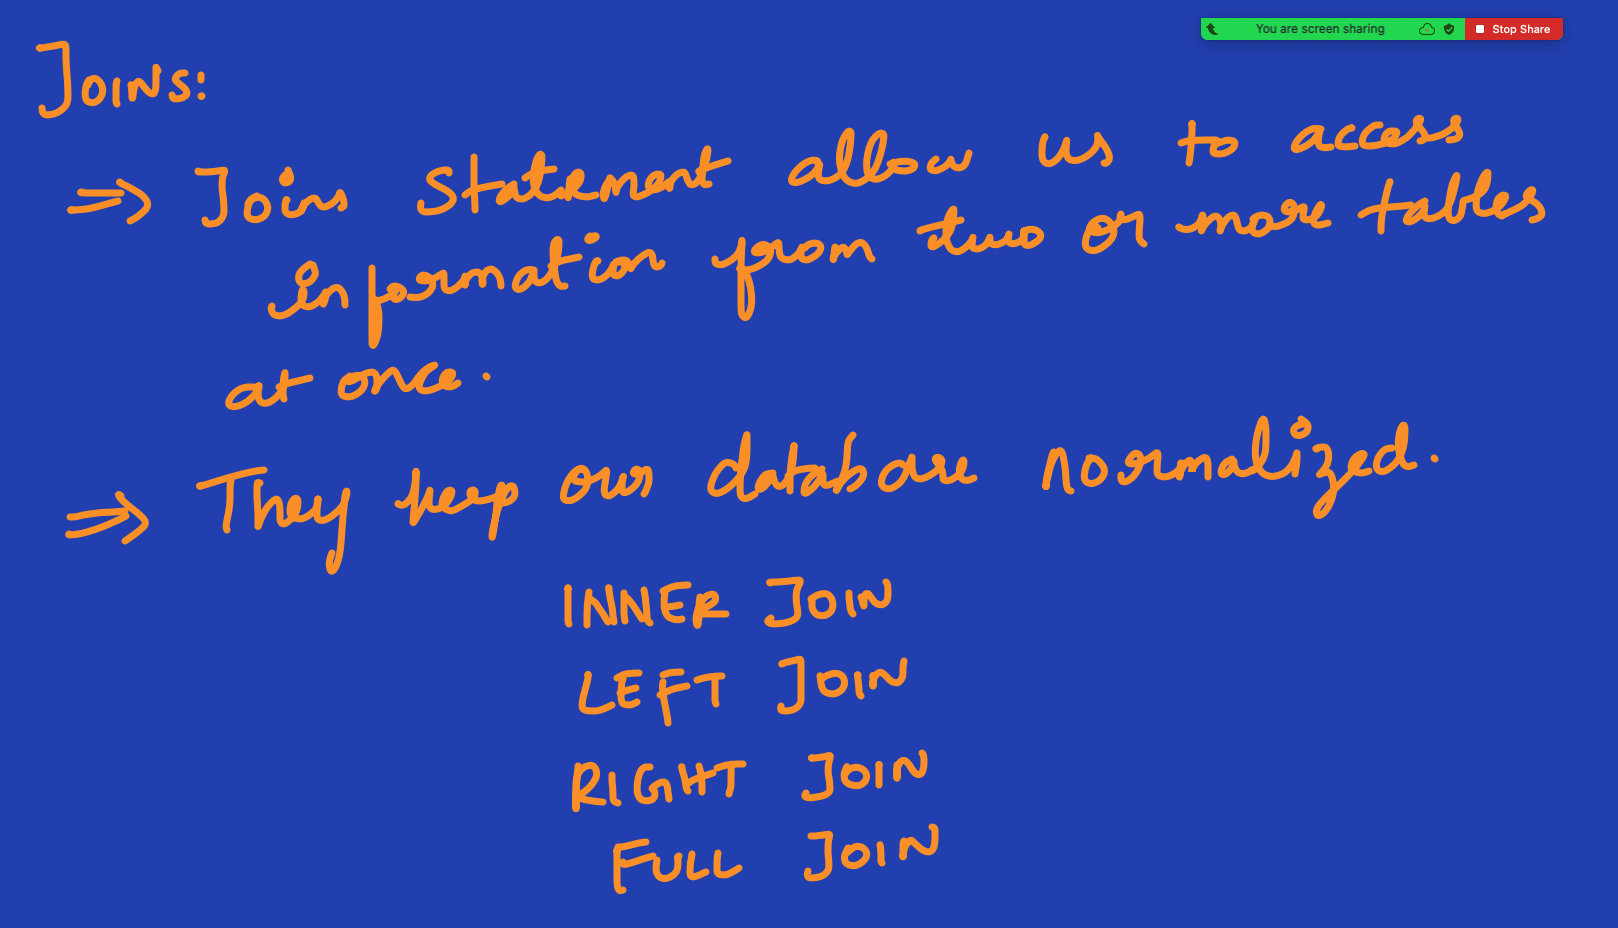 You are screen sharing Stop Share
JOINS:
⇒ Joins Statement allow us to access
information from two or more tables
at once.
⇒ They keep our database normalized.
INNER JOIN
LEFT JOIN
RIGHT JOIN
FULL JOIN